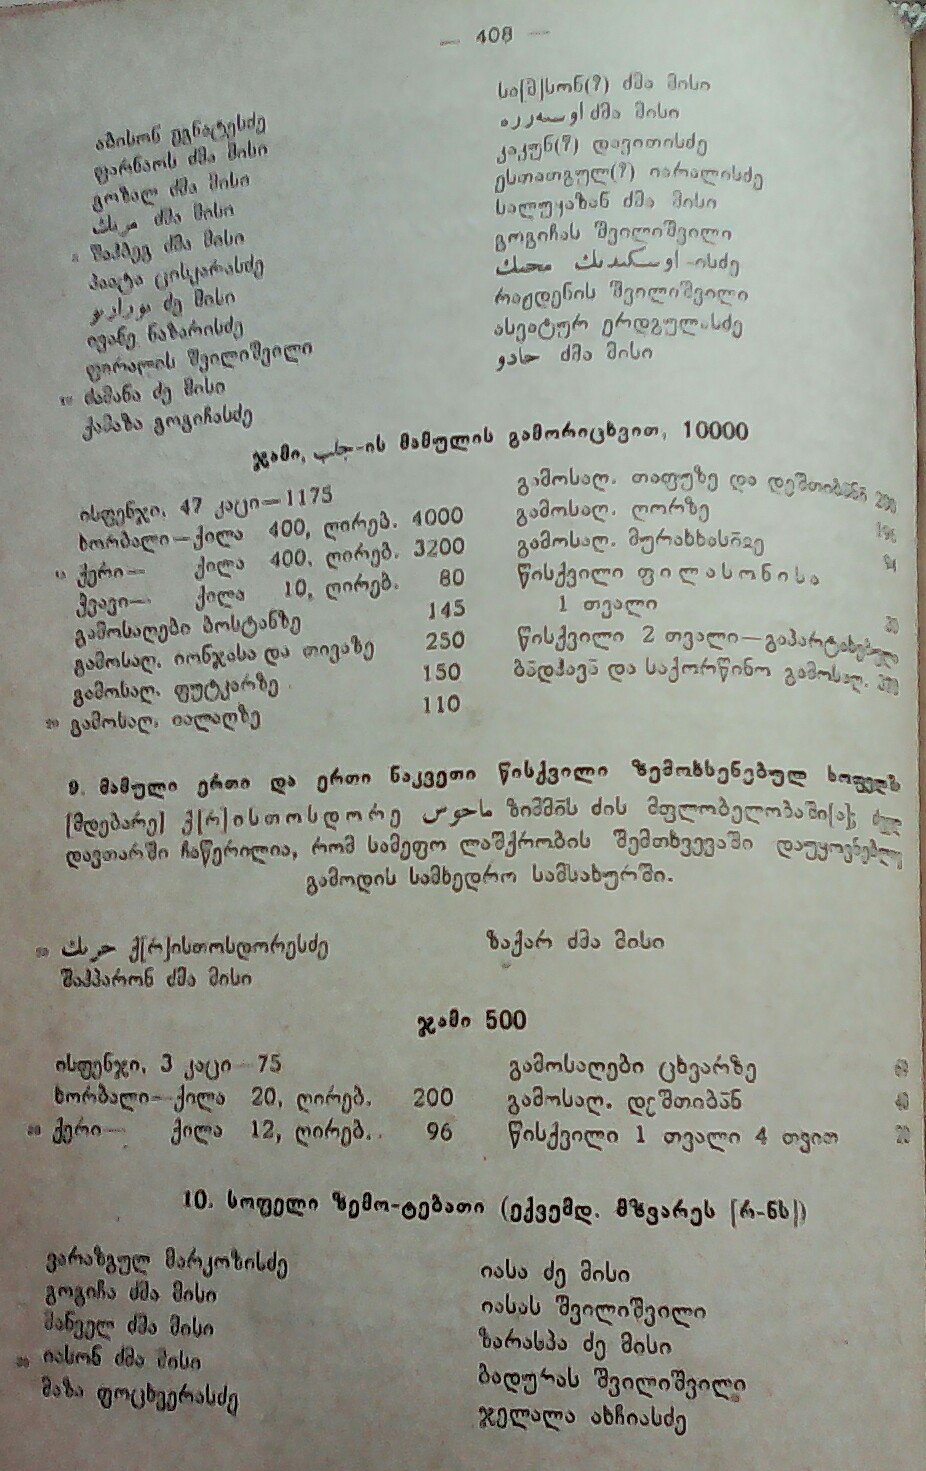 — 408 —
აბისონ ეგნატესძე
ფარნაოს ძმა მისი
გოზალ ძმა მისი
ძმა მისი
შაჰბეგ ძმა მისი
პაატა ცისკარასძე
ძე მისი
ივანე ნაზარისძე
ფირალის შვილიშვილი
10 ძამანა ძე მისი
ქამაზა გოგიჩასძე
სა[მ]სონ(?) ძმა მისი
ძმა მისი
კაკუნ(?) დავითისძე
ესთათგულ(?) იარალისძე
სალუყაზან ძმა მისი
გოგიჩას შვილიშვილი
-ისძე
რაჟდენის შვილიშვილი
ასვატურ ერდგულასძე
ძმა მისი
ჯამი, -ის მამულის გამორიცხვით, 10000
ისფენჯი, 47 კაცი—1175
ხორბალი—ქილა 400, ღირებ. 4000
ქერი— ქილა 400, ღირებ. 3200
ჭვავი— ქილა 10, ღირებ. 80
გამოსაღები ბოსტანზე 145
გამოსაღ. იონჯასა და თივაზე 250
გამოსაღ. ფუტკარზე 150
20 გამოსაღ. იალაღზე 110
გამოსაღ. თაფუზე და დეშთიბანნ
გამოსაღ. ღორზე
გამოსაღ. მურახხასიჲე
წისქვილი ფილასონისა
1 თვალი
წისქვილი 2 თვალი—გაპარტახებული
ბადჰავა და საქორწინო გამოსაღ.
9. მამული ერთი და ერთი ნაკვეთი წისქვილი ზემოხსენებულ სოფელში
[მდებარე] ქ[რ]ისთოსდორე ზიმმის ძის მფლობელობაში[ა]; ძველ
დავთარში ჩაწერილია, რომ სამეფო ლაშქრობის შემთხვევაში დაუყოვნებლივ
გამოდის სამხედრო სამსახურში.
ქ[რ]ისთოსდორესძე
შაჰპარონ ძმა მისი
ზაქარ ძმა მისი
ჯამი 500
ისფენჯი, 3 კაცი—75
ხორბალი—ქილა 20, ღირებ. 200
ქერი— ქილა 12, ღირებ. 96
გამოსაღები ცხვარზე
გამოსაღ. დეშთიბან 40
წისქვილი 1 თვალი 4 თვით 20
10. სოფელი ზემო-ტებათი (ექვემდ. მზვარეს [რ-ნს])
ვარაზგულ მარკოზისძე
გოგიჩა ძმა მისი
მანველ ძმა მისი
იასონ ძმა მისი
მაზა ფოცხვერასძე
იასა ძე მისი
იასას შვილიშვილი
ზარასპა ძე მისი
ბადურას შვილიშვილი
ჯელალა ახჩიასძე